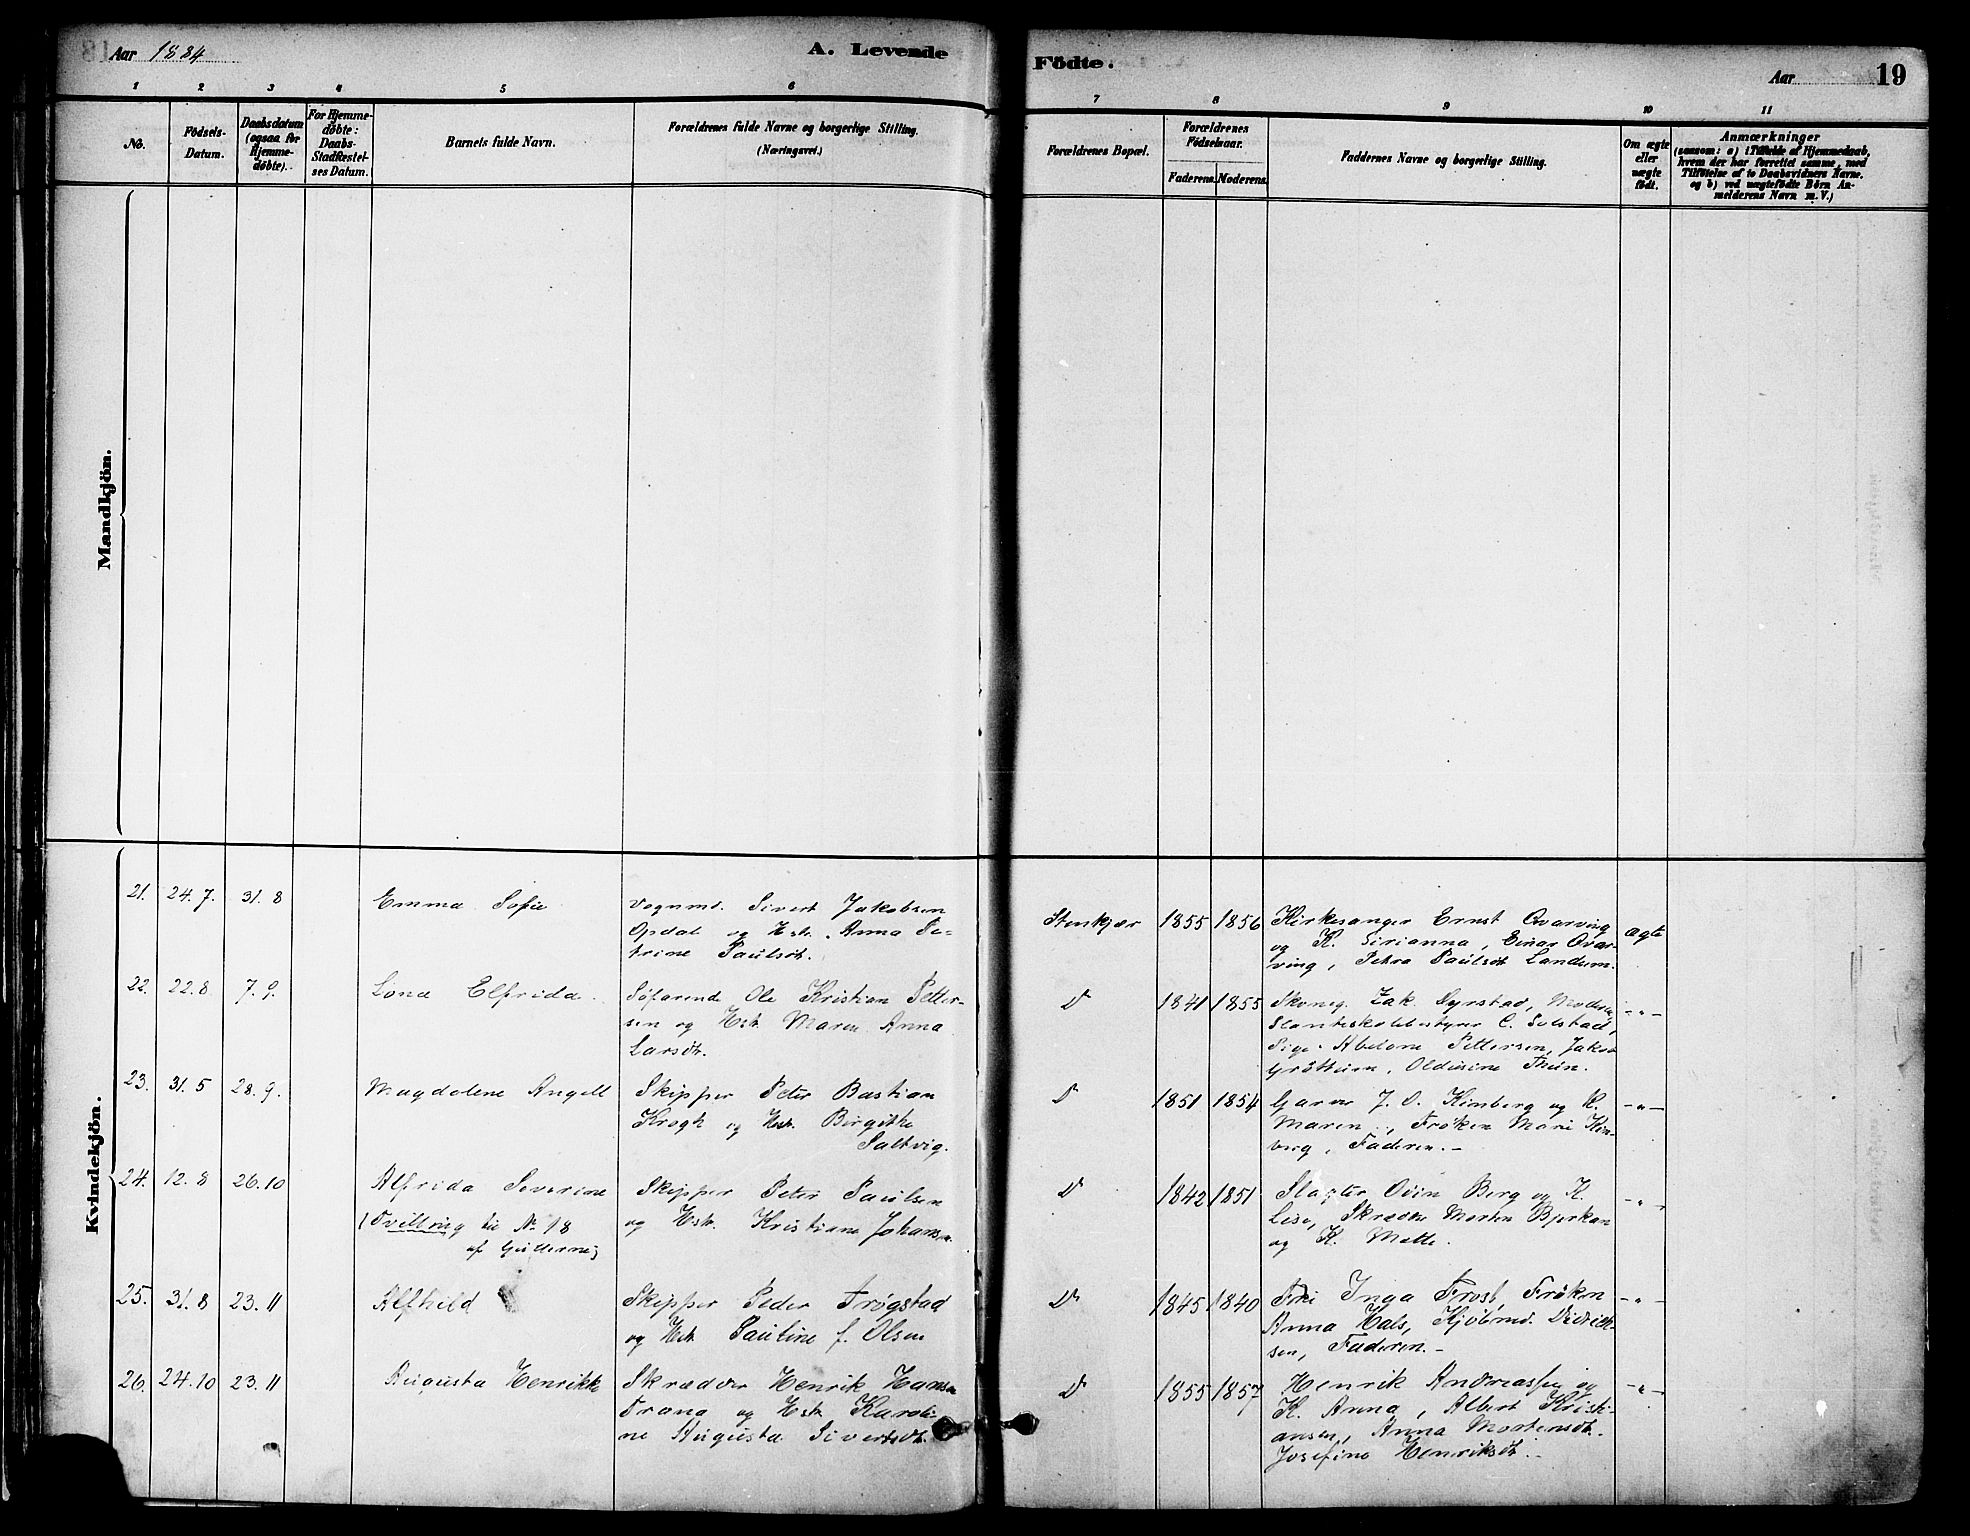 Aar 1884
A. Levende
Födte.
Aar
19
1 2 3 4 5 6 7 8 9 10 11
No.
Födsels-
Datum.
Daabsdatum
(ogsaa for
Hjemme-
døbte).
For Hjemme-
døbte:
Daabs-
Stadfæstel-
ses Datum.
Barnets fulde Navn.
Forældrenes fulde Navne og borgerlige Stilling.
(Næringsvei.)
Forældrenes Bopæl.
Forældrenes
Födselsaar.
Faderens. Moderens.
Faddernes Navne og borgerlige Stilling.
Om ægte
eller
uægte
født.
Anmærkninger
(saasom: a) i Tilfælde af Hjemmedaab,
hvem der har forrettet samme, med
Tilføielse af to Daabsvidners Navne.
og b) ved uægtefödte Börn An-
melderens Navn m.V.)
Mandkjön.
Kvindekjön.
21. 24.7. 31.8
Emma Sofie
Vognmd. Sivert Jakobsen
Opdal og Hst. Anna Pe-
trine Paulsdt.
Stenkjær
1855 1856
Kirkesanger Ernst Qvarving
og K. Sirianna, Einar Qvar-
ving, Petra Paulsdt Landsem.
ægte
22. 22.8 7.9.
Lona Elfrida
Søfarende Ole Kristian Petter-
sen og Hst. Maren Anna
Larsdt.
D
1841 1855
Skomag. Zak. Gyrstad, Moderen,
C. Solstad,
Pige Abelone Pettersen, Jakob
Grøttum, Oldusine Thun.
-"-
23. 31.5 28.9.
Magdalene Angell
Skipper Peter Bastian
Krogh og Hst. Birgithe
Saltvig.
D
1851 1854
Garver J. O. Kimberg og K.
Maren, Frøken Marie Kim-
berg, Faderen.-
-"-
24. 12.8 26.10
Alfrida Severine
(Tvilling til No 18
af Gutterne)
Skipper Peter Paulsen
og Hst. Kristiane Johansen.
D
1842 1851
Slagter Odin Berg og K.
Lise, Skræder Morten Bjerkan
og K. Mette.
-"-
25. 31.8 23.11
Alfhild
Skipper Peder Trøgstad
og Hst. Pauline f. Olsen
D
1845 1840
Frk. Inga Frost, Frøken
Anna Hals, Kjøbmd. Didrich-
sen, Faderen.-
-"-
26. 24.10 23.11
Augusta Henrikke
Skrædder Henrik Hansen
Trana og Hst. Karoli-
ne Augusta Sivertsdt.
D
1855 1857
Henrik Andreassen og
K. Anna, Albert Kristi-
ansen, Anna Mortensdt.
Josefine Henriksdt.-
-"-